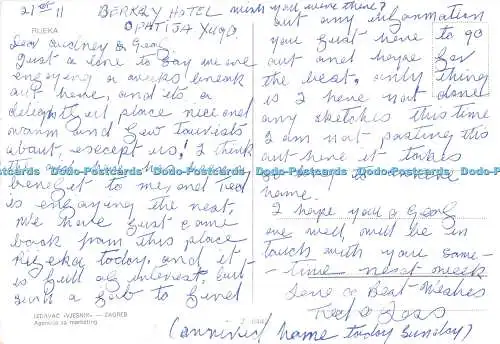 21st 11
BERKLY HOTEL
OPATIJA YUGO
RIJEKA
Dear Audrey & Geof
Just a line to say we are
enjoying a weeks break
out here, and its a
delightful place nice and
warm and few tourists
about, except us! I think
benefit to me, and Ted
is enjoying the rest.
We have just come
back from this place
Rijeka today, and it
is full of interest, but
its a job to find
IZDAVAČ »VJESNIK« — ZAGREB
Agencija za marketing
wish you were there?
out any information
you just have to go
out and hope for
the best. Only thing
is I have not done
any sketches this time
I am not posting this
out here it takes
home.
I hope you & Geof
are well, will be in
touch with you some-
- time next week
Love & Best Wishes
Ted & Joss
(arrived home today Sunday)
Postcards Postcards Postcards Postcards Postcards Postcards